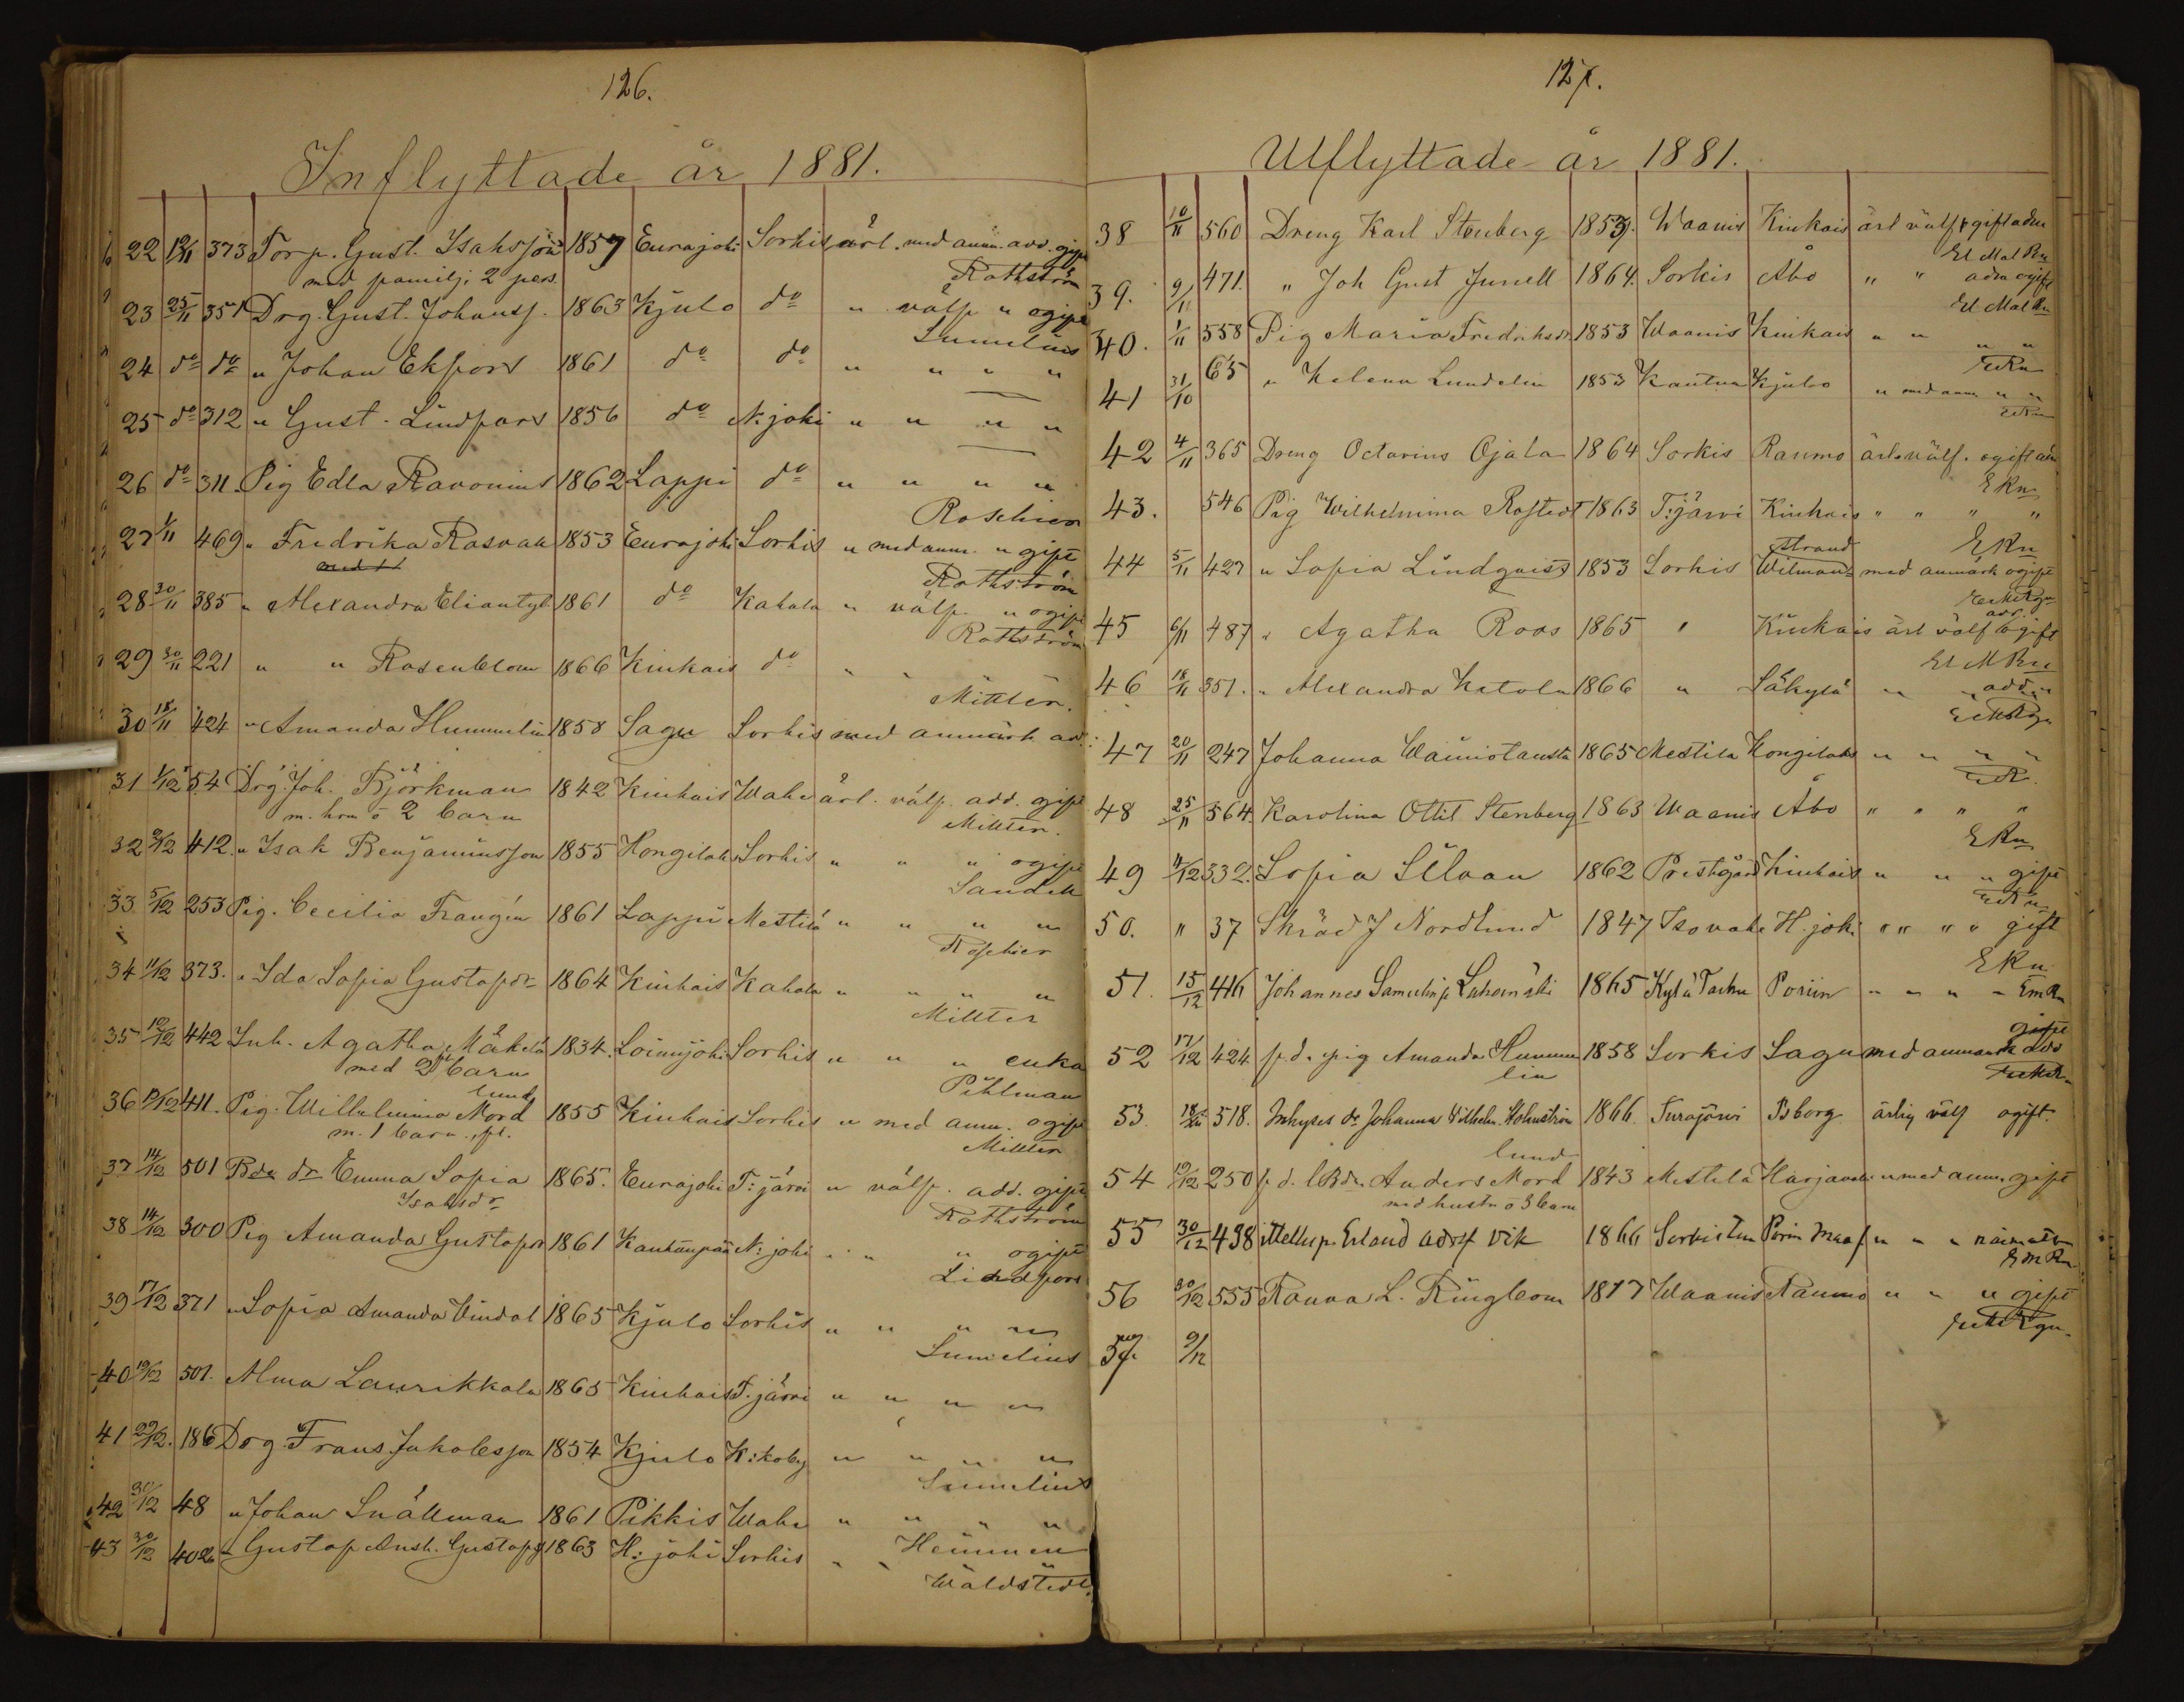 126.
Inflyttade år 1881.
22 12/11 373 Torp. Gust. Isaksson 1857 Eurajoki Sorkis ärl. med anm. adv. gift
med familj, 2 pers. Rothström
23 25/11 351 Drg. Gust. Johanss. 1863 Kjulo do " välf. " ogift
Sumelius
24 do do " Johan Ekfors 1861 do do " " " "
25 do 312 " Gust. Lindfors 1856 do N:joki " " " "
26 do 311. Pig Edla Ravonius 1862 Lappi do " " " "
Roschier
27 1/11 469 " Fredrika Rasvall 1853 Eurajoki Sorkis " med anm. " gift
Rothström
28 30/11 385 " Alexandra Eliantyt 1861 do Kahala " välf. " ogift
Rothström
29 30/11 221 " " Rosenblom 1866 Kiukais do " "
Mittlér.
30 18/11 424 " Amanda Hummelin 1858 Sagu Sorkis med anmärk ad.
31 1/12 54 Drg. Joh. Björkman 1842 Kiukais Wahe ärl. välf. add. gift
m. hru o 2 barn Mittler.
32 2/12 412. " Isak Benjaminsson 1855 Hongilaks Sorkis " " " ogift
Sandell
33 5/12 253 Pig. Cecilia Frangén 1861 Lappi Mestilä " " " "
Roschier
34 11/12 373. " Ida Sofia Gustafdr 1864 Kiukais Kahala " " " "
Mittler
35 12/12 442 Inh. Agatha Mäkelä 1834. Loimijoki Sorkis " " " enka
med 2 barn Pihlman
36 411. Pig. Willhelmina Nordlund 1855 Kiukais Sorkis " med anm. ogift
m. 1 barn Mittler
37 14/12 501 Bde dr Emma Sofia 1865. Eurajoki T:järvi " välf. add. gift
Isaksdr Rothström
38 14/12 300 Pig Amanda Gustafsdr 1861 Kankaanpää N:joki " " " ogift
Lindfors
39 17/12 371 " Sofia Amanda Vindal 1865 Kjulo Sorkis " " " "
Sumelius
40 19/12 501. Alma Laurikkala 1865 Kiukais T:järvi " " " "
41 29/12. 186 Drg. Frans Jakobsson 1854 Kjulo K:koby " " " "
Sumelius
42 30/12 48 " Johan Snällman 1861 Pikkis Wahe " " " "
Heininen
43 30/12 402 " Gustaf Ansh. Gustafs 1863 H:joki Sorkis " "
Wäldstedt.
127.
Utflyttade år 1881.
38 10/11 560 Dreng Karl Stenberg 1853. Waanis Kiukais ärl välf ogift adm
El Mal Rn
39. 9/11 471. " Joh Gust Junell 1864. Sorkis Åbo " " adm ogift
El Mal Rn
40. 1/11 558 Pig Maria Fredriksdr 1853 Waanis Kiukais " " " "
41 31/10 65 " Helena Lundelin 1853 Kautua Kjulo " med anm " "
42 4/11 365 Dreng Octavius Ojala 1864 Sorkis Raumo ärl. välf. ogift adm
E Rn
43. 546 Pig Wilhelmina Rostedt 1863 T:järvi Kiukais " " " "
E Rn
44 5/11 427 " Sofia Lindqvist 1853 Sorkis Wilmanstrand med anmärk ogift
45 6/11 487 " Agatha Roos 1865 " Kiukais ärl välf adv. ogift
El M Rn
46 18/11 351. " Alexandra Ketola 1866 " Säkylä " " add "
47 20/11 247 Johanna Wainiotausta 1865 Mestila Hongilaks " " " "
48 25/11 564. Karolina Ottil Stenberg 1863 Waanis Åbo " " " "
E Rn
49 4/12 332. Sofia Silvan 1862 Prestgård Kiukais " " " gift
50. " 37 Skräd J Nordlund 1847 Isovahe H.joki " " " " gift
E Rn
51. 15/12 416 Johannes Samelinp Lahomäki 1865 Kylä Torku Poriin " " " " Em Rn
52 17/12 424 f.d. pig Amanda Hummelin 1858 Sorkis Sagu med anmärk add gift
53. 18/12 518. Inhyses dr Johanna Vilhelm. Holmström 1866. Turajärvi Isborg ärlig välf ogift.
54 19/12 250 f.d. Bde Anders Nordlund 1843 Mestilä Harjavalta " med anm. gift
med hustr o 3 barn
55 30/12 438 Erland Adolf Vik 1866 Sorkisten Porin Maas " " "
E M Rn
56 30/12 555 Rouva L. Ringbom 1817 Waanis Raumo " " " gift
57 9/12